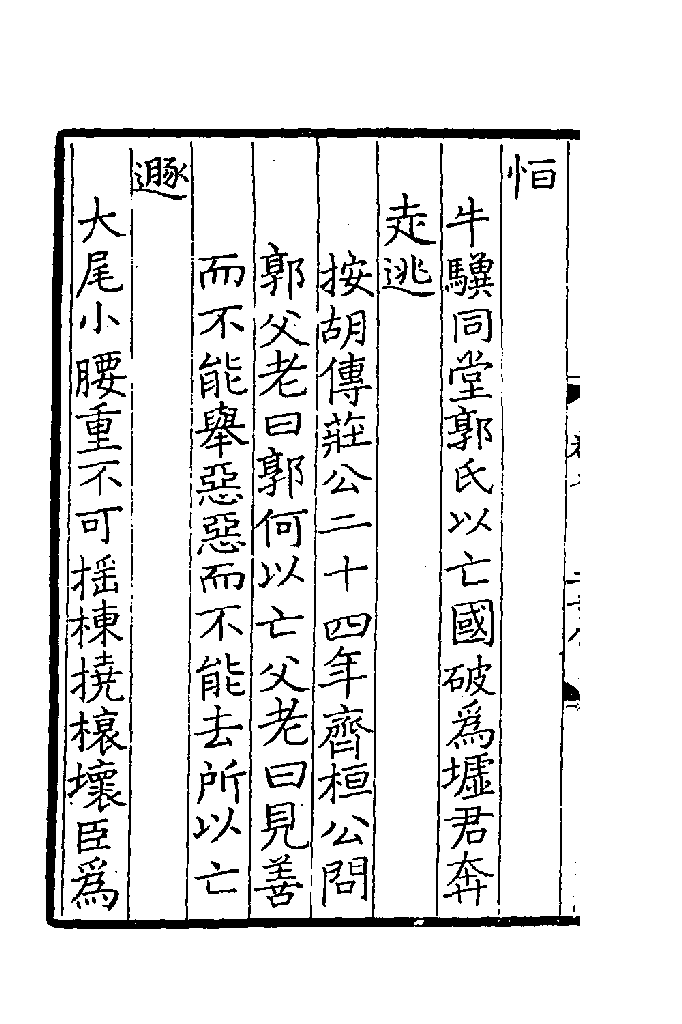 恒
牛驥同堂郭氏以亡國破為墟君奔
走逃
按胡傳莊公二十四年齊桓公問
郭父老曰郭何以亡父老曰見善
而不能舉惡惡而不能去所以亡
遯
大尾小腰重不可揺棟撓榱壞臣為